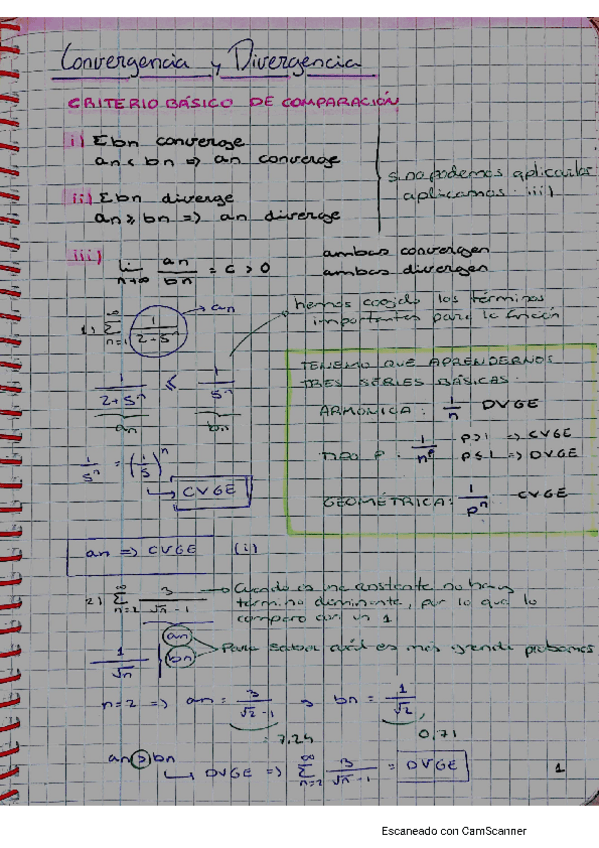 Convergencia y Divergencia
CRITERIO BÁSICO DE COMPARACIÓN
i) Σbn converge
an < bn => an converge
ii) Σbn diverge
an ≥ bn => an diverge
si no podemos aplicarlos
aplicamos iii)
iii) lim n→∞ an/bn = c > 0
ambas convergen
ambas divergen
1) Σ n=1 ∞ 1/(2+5^n) → an
hemos cogido los términos
importantes para la función
1/(2+5^n) ≤ 1/5^n
an bn
1/5^n = (1/5)^n
CVGE
TENEMOS QUE APRENDERNOS
TRES SERIES BÁSICAS:
ARMÓNICA: 1/n DVGE
TIPO P: 1/n^p p>1 => CVGE
p≤1 => DVGE
GEOMÉTRICA: 1/p^n CVGE
an => CVGE (i)
2) Σ n=2 ∞ 3/(√n-1) → Cuando es una constante no hay
término dominante, por lo que lo
comparo con un 1
1/√n
an
bn
Para saber cuál es más grande probamos
n=2 => an = 3/(√2-1) → bn = 1/√2
= 7,24 0,71
an > bn
DVGE => Σ n=2 ∞ 3/(√n-1) = DVGE
1
Escaneado con CamScanner